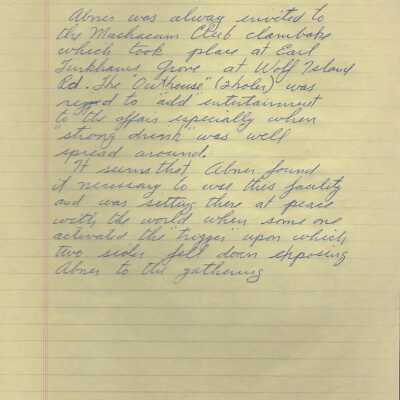 Abner was alway invited to
the Machacam Club clambake
which took place at Earl
Turkhams Grove at Wolf Island
Rd. The "Outhouse" (2holer) was
rigged to "add" entertainment
to the affair especially when
"strong drink" was well
spread around.
It seems that Abner found
it necessary to use this facility
and was setting there at peace
with the world when some one
activated the "trigger" upon which
two sides fell down exposing
Abner to the gathering